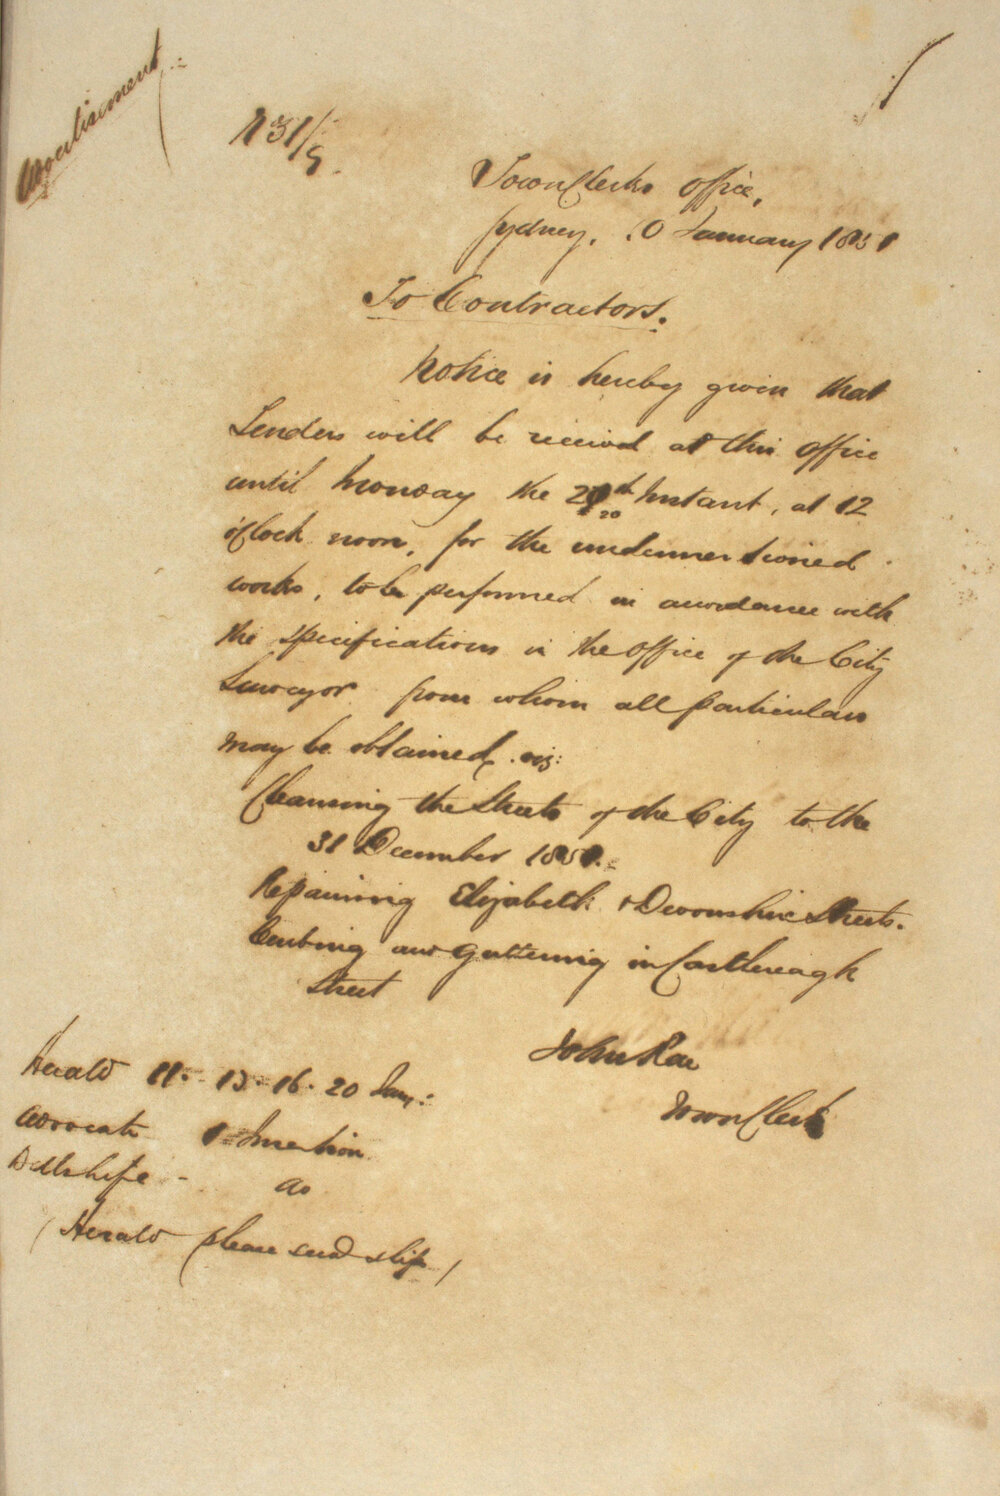 Advertisement
Town Clerks Office,
Sydney, 10 January 1851
To Contractors.
Notice is hereby given that
Tenders will be received at this office
until Monday the 20th Instant, at 12
20
o'Clock noon, for the undermentioned
works, to be performed in accordance with
the specifications in the office of the City
Surveyor from whom all particulars
may be obtained. viz:
Cleansing the Streets of the City to the
31 December 1851.
Repairing Elizabeth & Devonshire Streets.
Curbing and Guttering in Castlereagh
Street
John Rae
Town Clerk
Herald 11. 13. 16. 20 Jany:
Advocate 1 Insertion
Bells Life - do
(Herald please send slip)